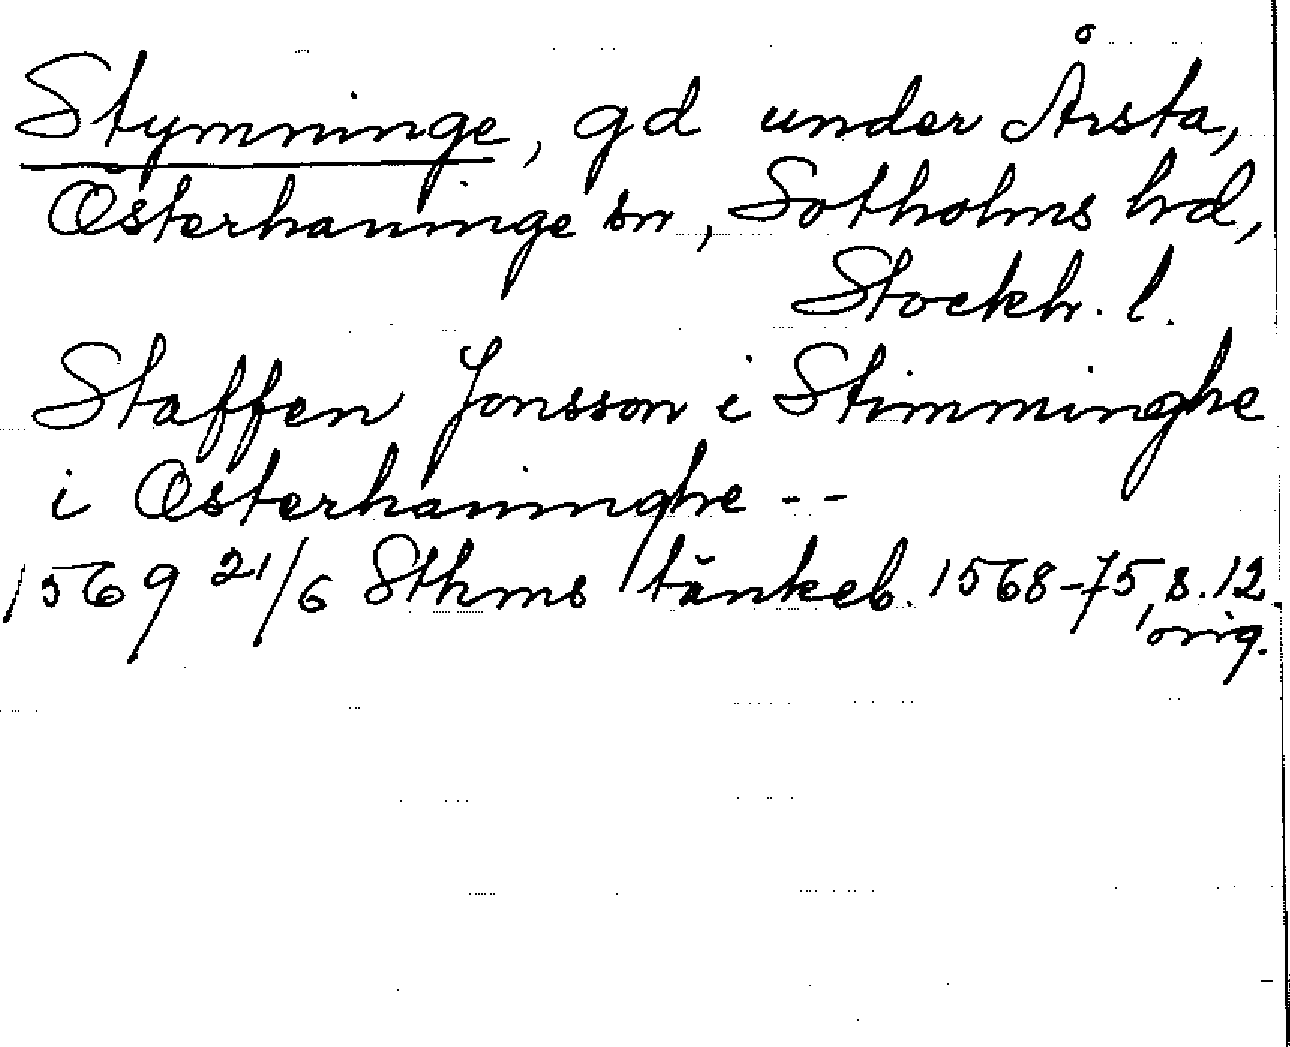 Stymninge, gd under Årsta,
Österhaninge sn, Sotholms hd,
Stockh. l.
Staffen Jonsson i Stimminghe
i Østerhaninghe --
1569 21/6 Sthms tänkeb. 1568-75, s. 12
orig.